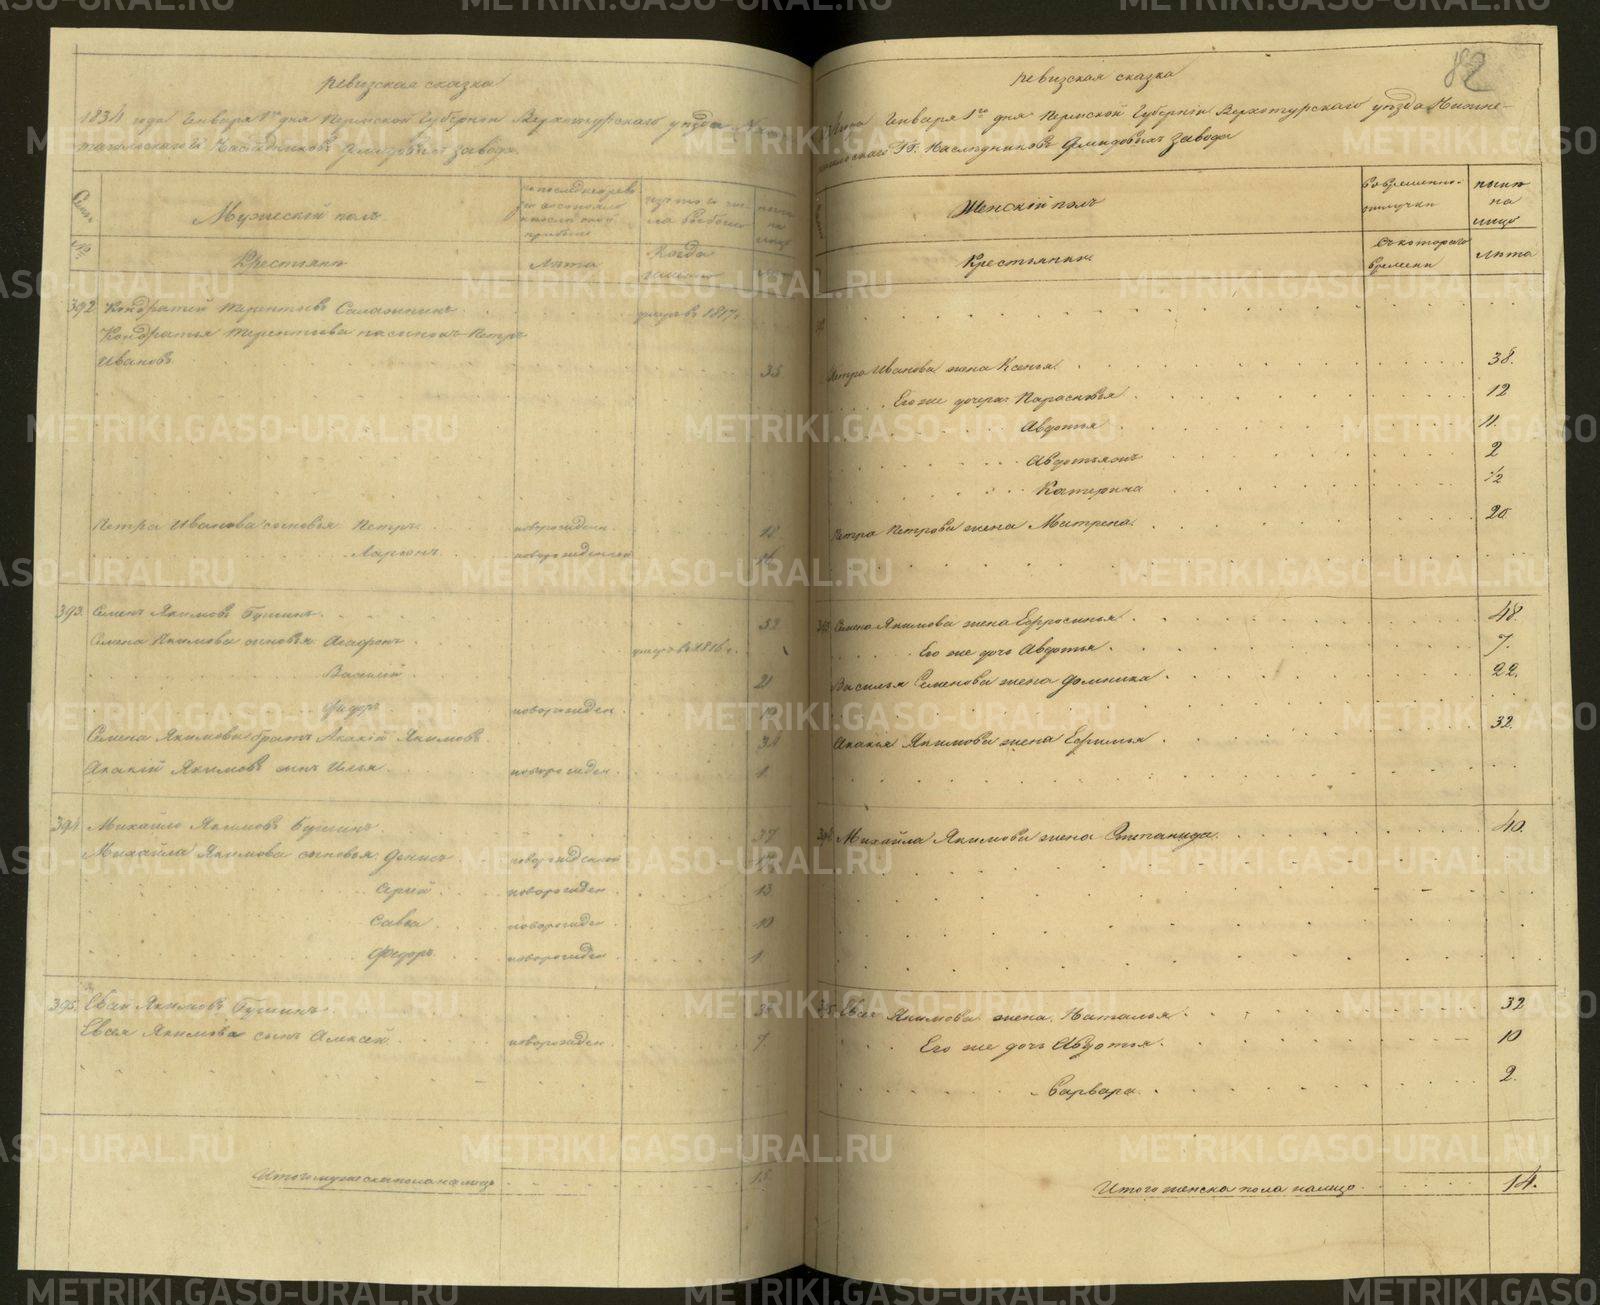 82
ревизская сказка
1834 года Генваря 1го дня Пермской Губернии Верхотурскаго уезда
тагильскаго Наследниковъ Демидовыхъ завода
Мужескій полъ
Крестьяне
Лета
Когда
392 Кондратей Терентьевъ
умеръ въ 1817 г.
Кондратья Терентьева пасынокъ Петръ
Ивановъ
35
Петра Иванова сыновья Петръ
новорожден
18
Ларионъ
новорожденной
16
393. Семенъ Якимовъ Бушинъ
52
Семена Якимова сыновья Агафонъ
умеръ въ 1816 г.
Василий
21
Федоръ
новорожден
Семена Якимова братъ Акакій Якимовъ
Акакій Якимовъ сынъ Илья
новорожден
1
394 Михайло Якимовъ Бушинъ
37
Михайла Якимова сыновья Денисъ
новорожденной
новорожден
13
Савва
новорожден
10
Федоръ
новорожден
1
395. Евсей Якимовъ Бушинъ
Евсея Якимова сынъ Алексей
новорожден
7.
Итого мужеска пола на лицо
15
ревизская сказка
Генваря 1го дня Пермской Губерніи Верхотурскаго уезда Нижне-
тагильскаго ГГ. Наследниковъ Демидовыхъ завода
Женскій полъ
во временной отлучки
ныне на лицо
Крестьянки
Съ котораго времени
лета
Петра Иванова жена Ксенья
38.
Его же дочери Парасковья
12
Авдотья
11.
2
Катерина
1/2
Петра Петрова жена Матрена
20
Семена Якимова жена Ефросинья
48.
Его же дочь Авдотья
7.
Василья Семенова жена Домника
22.
Акакія Якимова жена Ефимья
32.
394 Михайла Якимова жена Степанида
40.
395. Евсея Якимова жена Наталья
32
Его же дочь Авдотья
10
Варвара
2.
Итого женска пола налицо
14.
METRIKI.GASO-URAL.RU